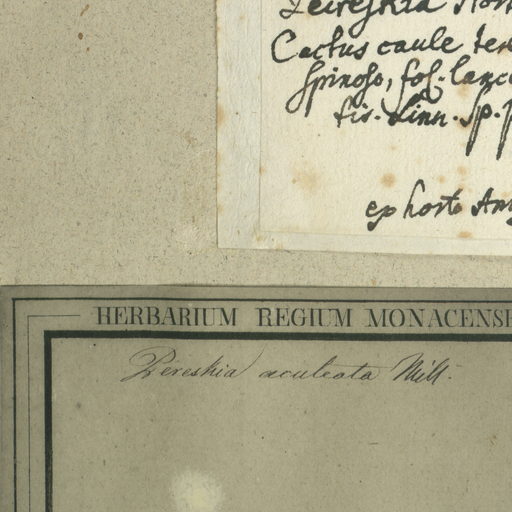 Cactus caule
spinoso, fol. lanc
tis. Linn. sp. p
ex horto Am
HERBARIUM REGIUM MONACENSE
Pereskia aculeata Mill.